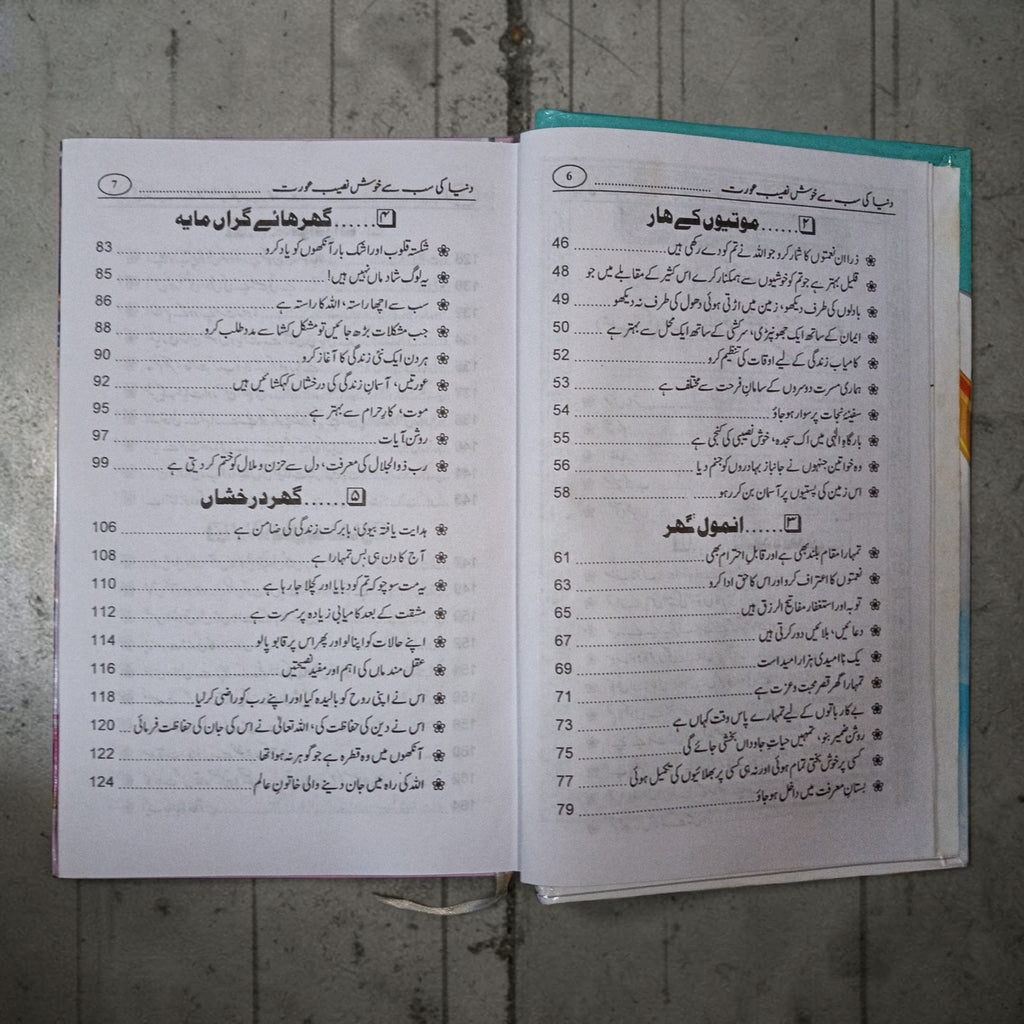 دنیا کی سب سے خوش نصیب عورت ........ 6
۲......موتیوں کے ہار
❀ ذرا ان نعمتوں کا شمار کرو جو اللہ نے تم کو دے رکھی ہیں ........ 46
❀ قلیل بہتر ہے جو تم کو خوشیوں سے ہمکنار کرے اس کثیر کے مقابلے میں جو ........ 48
❀ بادلوں کی طرف دیکھو، زمین میں اڑتی ہوئی دھول کی طرف نہ دیکھو ........ 49
❀ ایمان کے ساتھ ایک جھونپڑی، سرکشی کے ساتھ ایک محل سے بہتر ہے ........ 50
❀ کامیاب زندگی کے لیے اوقات کی تنظیم کرو ........ 52
❀ ہماری مسرت دوسروں کے سامانِ فرحت سے مختلف ہے ........ 53
❀ سفینۂ نجات پر سوار ہو جاؤ ........ 54
❀ بارگاہِ الٰہی میں اک سجدہ، خوش نصیبی کی کنجی ہے ........ 55
❀ وہ خواتین جنہوں نے جانباز بہادروں کو جنم دیا ........ 56
❀ اس زمین کی پستیوں پر آسمان بن کر رہو ........ 58
۳......انمول گہر
❀ تمہارا مقام بلند بھی ہے اور قابلِ احترام بھی ........ 61
❀ نعمتوں کا اعتراف کرو اور اس کا حق ادا کرو ........ 63
❀ توبہ اور استغفار مفاتیح الرزق ہیں ........ 65
❀ دعائیں، بلائیں دور کرتی ہیں ........ 67
❀ یک ناامیدی ہزار امید است ........ 69
❀ تمہارا گھر قصرِ محبت و عزت ہے ........ 71
❀ بے کار باتوں کے لیے تمہارے پاس وقت کہاں ہے ........ 73
❀ روشن ضمیر بنو، تمہیں حیاتِ جاوداں بخشی جائے گی ........ 75
❀ کسی پر خوش بختی تمام ہوئی اور نہ ہی کسی پر بھلائیوں کی تکمیل ہوئی ........ 77
❀ بستانِ معرفت میں داخل ہو جاؤ ........ 79
دنیا کی سب سے خوش نصیب عورت ........ 7
۴......گہرہائے گراں مایہ
❀ شکستہ قلوب اور اشک بار آنکھوں کو یاد کرو ........ 83
❀ یہ لوگ شاد ماں نہیں ہیں! ........ 85
❀ سب سے اچھا راستہ، اللہ کا راستہ ہے ........ 86
❀ جب مشکلات بڑھ جائیں تو مشکل کشا سے مدد طلب کرو ........ 88
❀ ہر دن ایک نئی زندگی کا آغاز کرو ........ 90
❀ عورتیں، آسمانِ زندگی کی درخشاں کہکشائیں ہیں ........ 92
❀ موت، کارِ حرام سے بہتر ہے ........ 95
❀ روشن آیات ........ 97
❀ رب ذوالجلال کی معرفت، دل سے حزن و ملال کو ختم کر دیتی ہے ........ 99
۵......گہر درخشاں
❀ ہدایت یافتہ بیوی، بابرکت زندگی کی ضامن ہے ........ 106
❀ آج کا دن ہی بس تمہارا ہے ........ 108
❀ یہ مت سوچو کہ تم کو دبایا اور کچلا جا رہا ہے ........ 110
❀ مشقت کے بعد کامیابی زیادہ پرمسرت ہے ........ 112
❀ اپنے حالات کو اپنا لو اور پھر اس پر قابو پا لو ........ 114
❀ عقل مند ماں کی اہم اور مفید نصیحتیں ........ 116
❀ اس نے اپنی روح کو بالیدہ کیا اور اپنے رب کو راضی کر لیا ........ 118
❀ اس نے دین کی حفاظت کی، اللہ تعالیٰ نے اس کی جان کی حفاظت فرمائی ........ 120
❀ آنکھوں میں وہ قطرہ ہے جو گوہر نہ ہوا تھا ........ 122
❀ اللہ کی راہ میں جان دینے والی خاتونِ عالم ........ 124